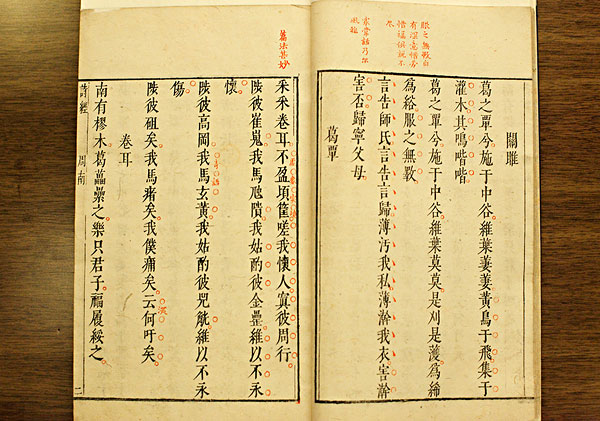 關雎
葛之覃兮施于中谷維葉萋萋黃鳥于飛集于
灌木其鳴喈喈
葛之覃兮施于中谷維葉莫莫是刈是濩為絺
為綌服之無斁
言告師氏言告言歸薄汚我私薄澣我衣害澣
害否歸寧父母
葛覃
采采卷耳不盈頃筐嗟我懷人寘彼周行
陟彼崔嵬我馬虺隤我姑酌彼金罍維以不永
懷
陟彼高岡我馬玄黃我姑酌彼兕觥維以不永
傷
陟彼砠矣我馬瘏矣我僕痡矣云何吁矣
卷耳
南有樛木葛藟纍之樂只君子福履綏之
詩經 周南 二